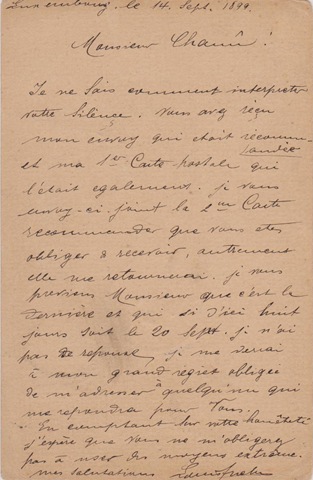 Luxembourg, le 14. Sept. 1899.
Monsieur !
Je ne sais comment interpreter
votre silence. Vous avez reçu
mon envoy qui etait recomm-
andée
et ma 1er Carte postale qui
l'était egalement. je vous
envoy-ci-joint la 2me Carte
recommander que vous etes
obliger à recevoir, autrement
elle me retournerai. je vous
previens Monsieur que c'est la
dernière et qui si d'ici huit
jours soit le 20 Sept. j n'ai
pas de reponse, je me verrai
à mon grand régret obligée
de m'adresser à quelqu'un qui
me repondra pour Vous.
En comptant sur votre honêteté
j'éspère que vous ne m'obligerez
pas à user des moyens extrème.
mes salutations